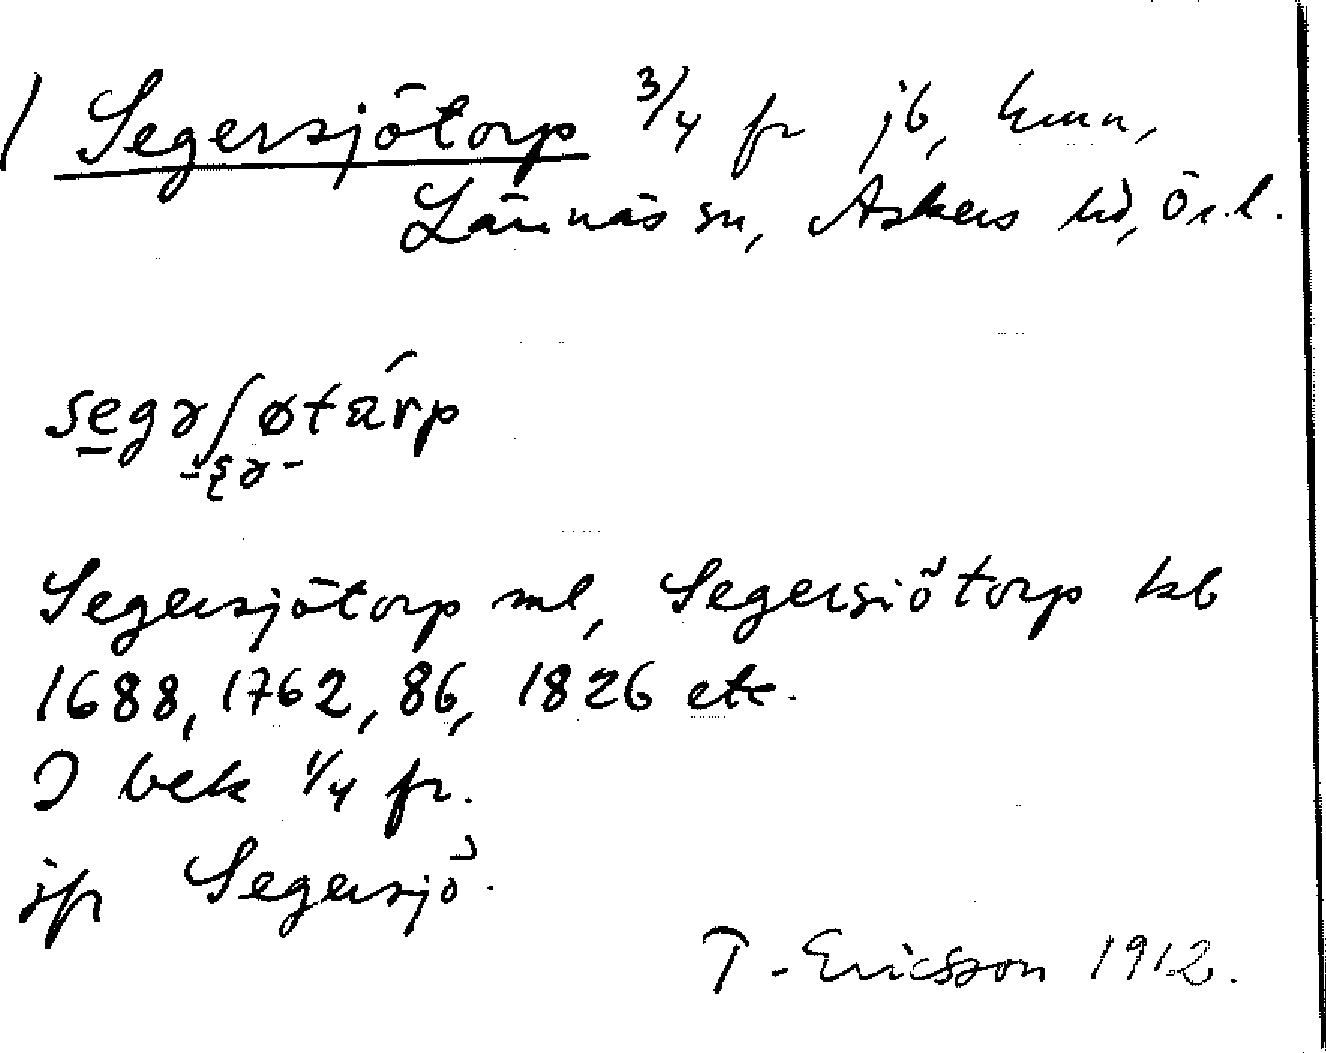 / Segersjötorp 3/4 fr jb,
Lännäs sn, Askers hd, Ör.l.
segəʃøtárp
-ʂə-
Segersjötorp ml, Segersiötorp kb
1688, 1762, 86, 1826 etc.
I bek 1/4 fr.
jfr Segersjö.
T. Ericsson 1912.